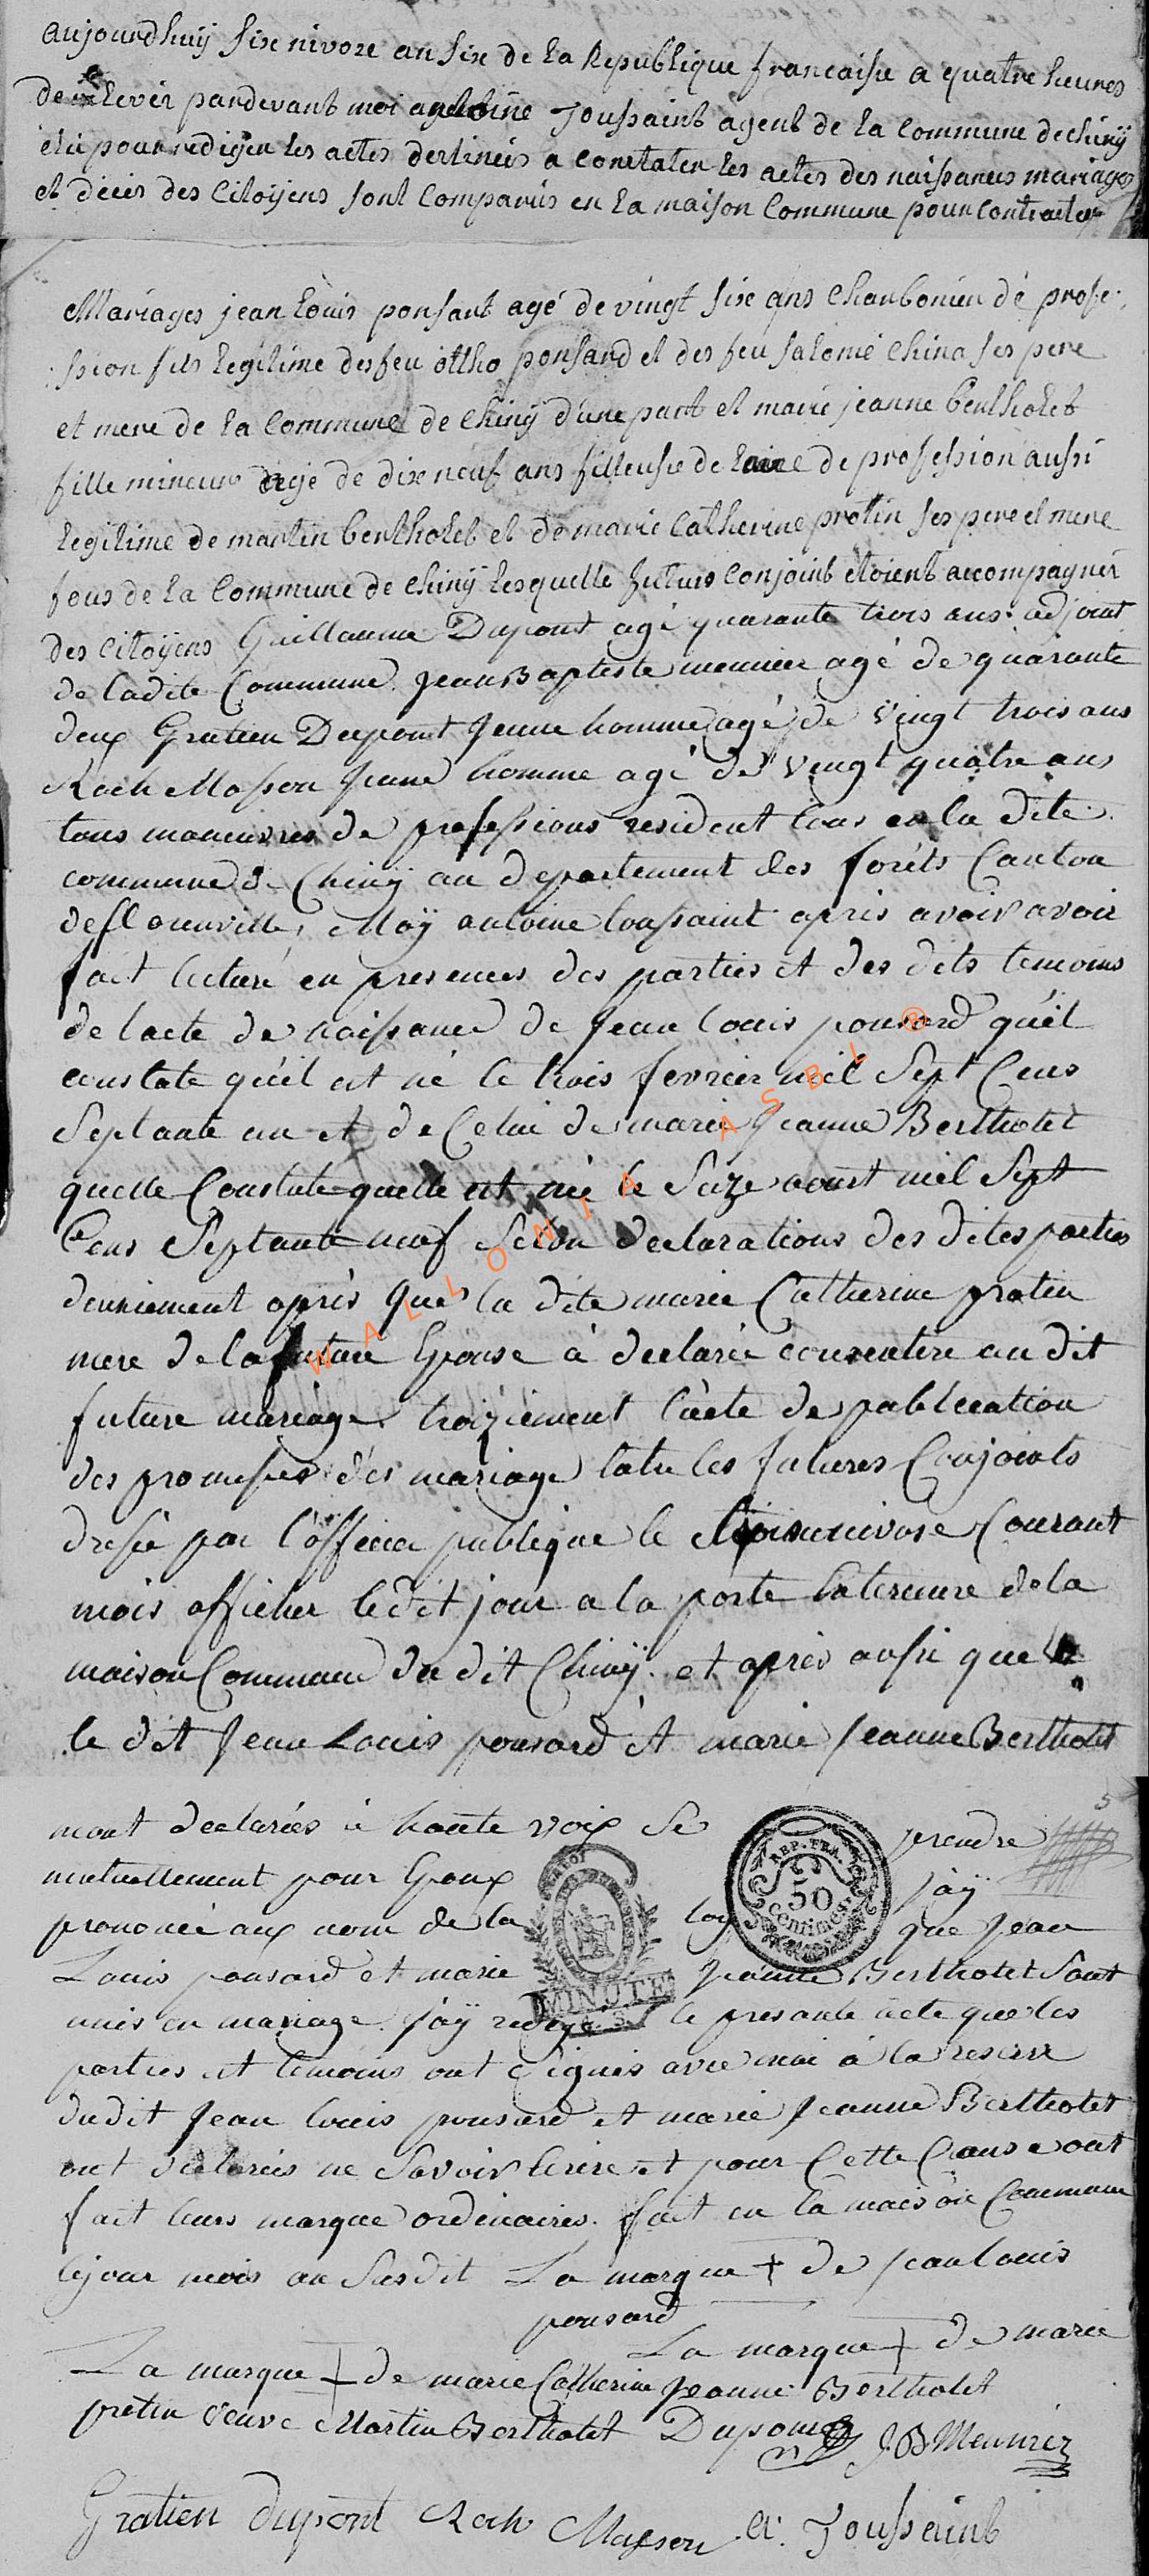 aujourdhuÿ six nivoze an six de la Republique francaise a quatre heures
de relever pardevant moi antoine Toussaint agent de la commune de chinÿ
élu pour rediger les actes destineis a constater les actes des naissances mariages
et décés des Citoÿens sont Comparûs en la maison Commune pour contracter
Mariages jean loùis ponsart agé de vingt six ans charbonier dé profe-
ssion fils legitime des feu ottho ponsard et des feu salomé china ses pere
et mere de la Commune de chinÿ d'une part et marié jeanne bertholet
fille mineur agé de dix neuf ans filleusse de laine de profession aussi
legitime de martin bertholet et de marie Catherine protin ses pere et mere
tous de la Commune de chinÿ lesquelle futurs Conjoint étoient accompagner
des citoÿens Guillaume Dupont agé quarante trois ans adjoint
de ladite Commune. Jean Baptiste meunier agé de quarante
deux Gratien Dupont Jeune homme agé de vingt trois ans
Roch Masson Jeune homme agé de vingt quatre ans
tous manoeuvres de professions resident tous en la dite
commune de Chinÿ au departement des forêts Canton
deflorenville, Moÿ antoine toussaint apris avoir avoir
fait lecturé en presences des parties et des dits temoins
de lacte de naissance de Jean louis ponsard qu'il
constate qu'il est né le trois fevrier mil Sept Cens
Septante un et de Celui de marie Jeanne Bertholet
quelle Constate quelle est née le Seize aoust mil Sept
Cens Septante neuf Selon declarations des dites parties
deuxiement après que la dite marie Catherine protin
mere de la future Epouse à declarée consentire au dit
future mariage troiziement l'acte de publication
des promesses dés mariage tatre les futures Conjoints
dressé par l'officier publique le trois nivose Courant
mois afficher ledit jour a la porte Exterieure de la
maison Commune du dit Chinÿ. et après aussi que
le dit Jean Louis ponsard et marie Jeanne Bertholet
mont declarées à haute voix Se prendre
mutuellement pour Epoux jaÿ
prononcé aux nom de la loy que Jean
Louis ponsard et marie Jeanne Bertholet Sont
unis en mariage. j'aÿ redigé le presante acte que les
parties et temoins ont signés avec moi à la reserve
dudit Jean louis ponsard et marie Jeanne Bertholet
ont declarées ne Savoir Ecrire et pour Cette Cause ont
fait leurs marque ordinaires. fait en la maison Commune
le jour mois an Susdit La marque + de jean louis
ponsard
La marque + de marie
La marque + de marie Catherine Jeanne Bertholet
protin veuve Martin Bertholet Dupont J.B Meunier
Gratien dupont Roch Masson A. Toussaint
REP. FRA.
50
centimes
MINUTE
WALLONIA ASBL ®